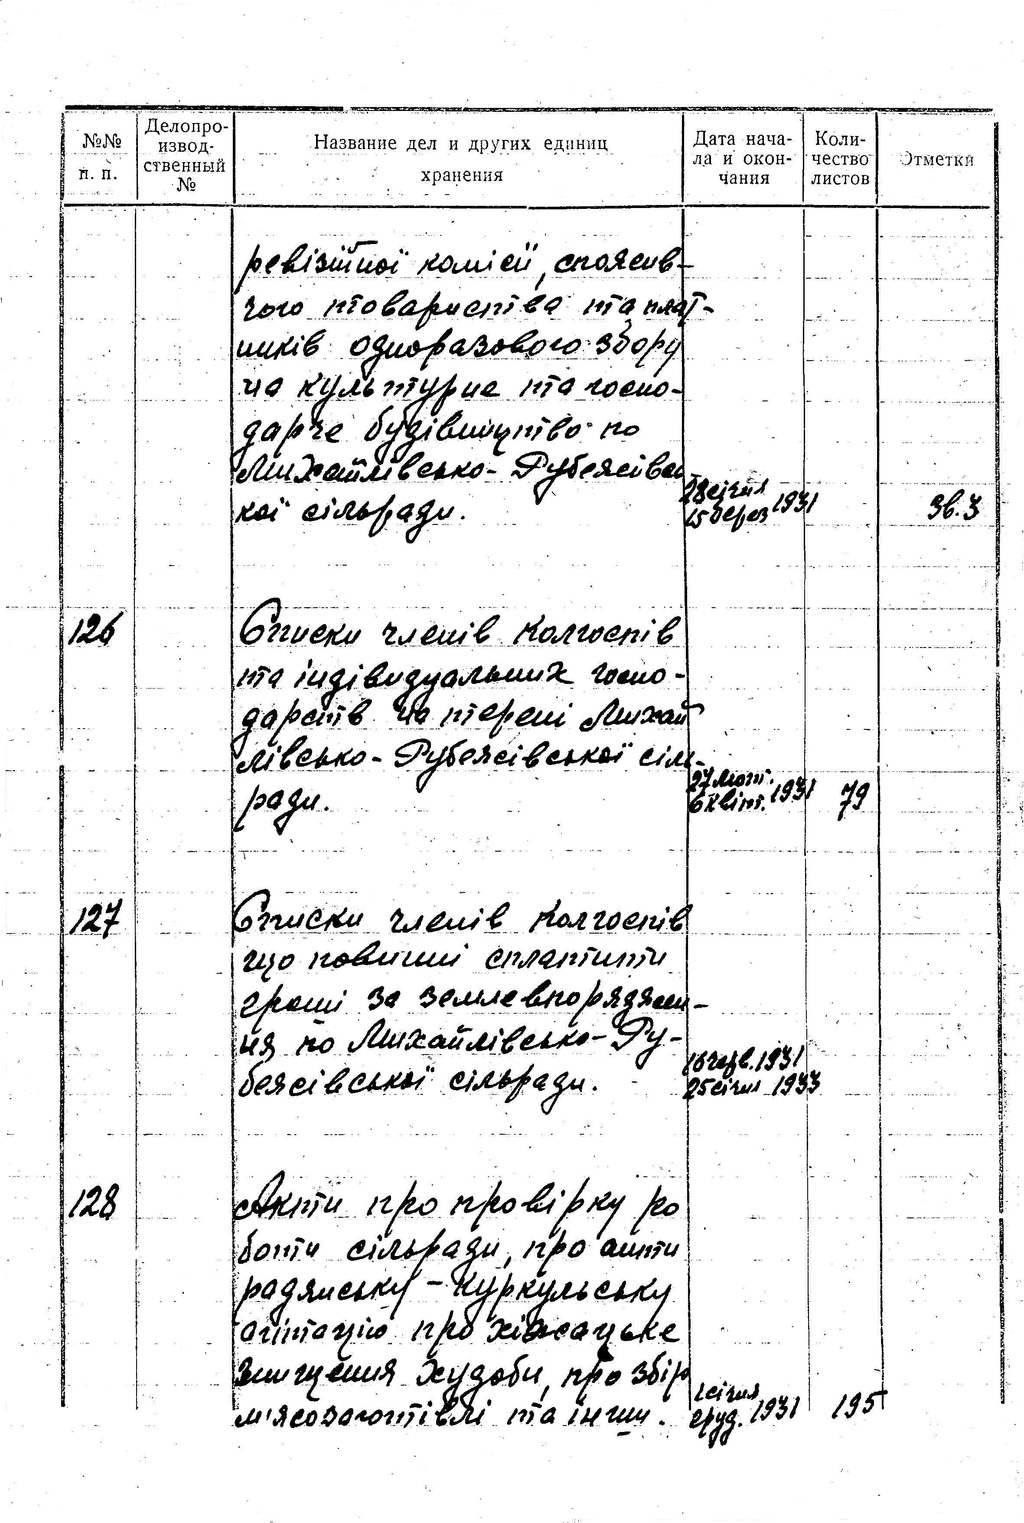 №№ п. п.
Делопро-
извод-
ственный
№
Название дел и других единиц
хранения
Дата нача-
ла и окон-
чания
Коли-
чество
листов
Отметки
ревізійної комісії, спожив-
чого товариства та плат-
ників одноразового збору
на культурне та госпо-
дарче будівництво по
Михайлівсько-Рубежівсь
кої сільради.
28 січня
15 берез 1931
Зв.3
126
Списки членів колгоспів
та індівидуальних госпо-
дарств на терені Михай
лівсько-Рубежівської сіль-
ради.
27 лют.
6 квіт. 1931
79
127
Списки членів колгоспів
що повинні сплатити
гроші за землевпоряджен-
ня по Михайлівсько-Ру-
бежівської сільради.
16 черв. 1931
25 січня 1933
128
Акти про провірку ро
боти сільради, про анти
радянську-куркульську
агітацію про хижацьке
знищення худоби, про збір
м'ясозаготівлі та інши.
1 січня
груд. 1931
195